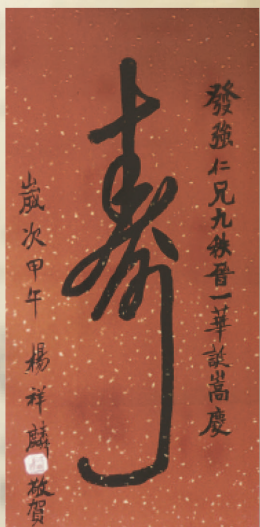 發強仁兄九秩晉一華誕嵩慶
壽
歲次甲午 楊祥麟 敬賀